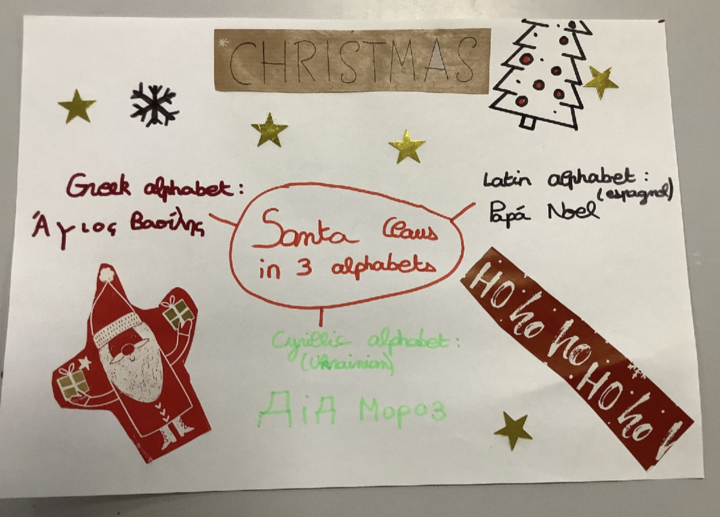 CHRISTMAS
Greek alphabet:
Άγιος Βασίλης
Latin alphabet:
(espagnol)
Papá Noel
Santa Claus
in 3 alphabets
Cyrillic alphabet:
(Ukrainian)
ДіД Мороз
HO ho ho HO ho!